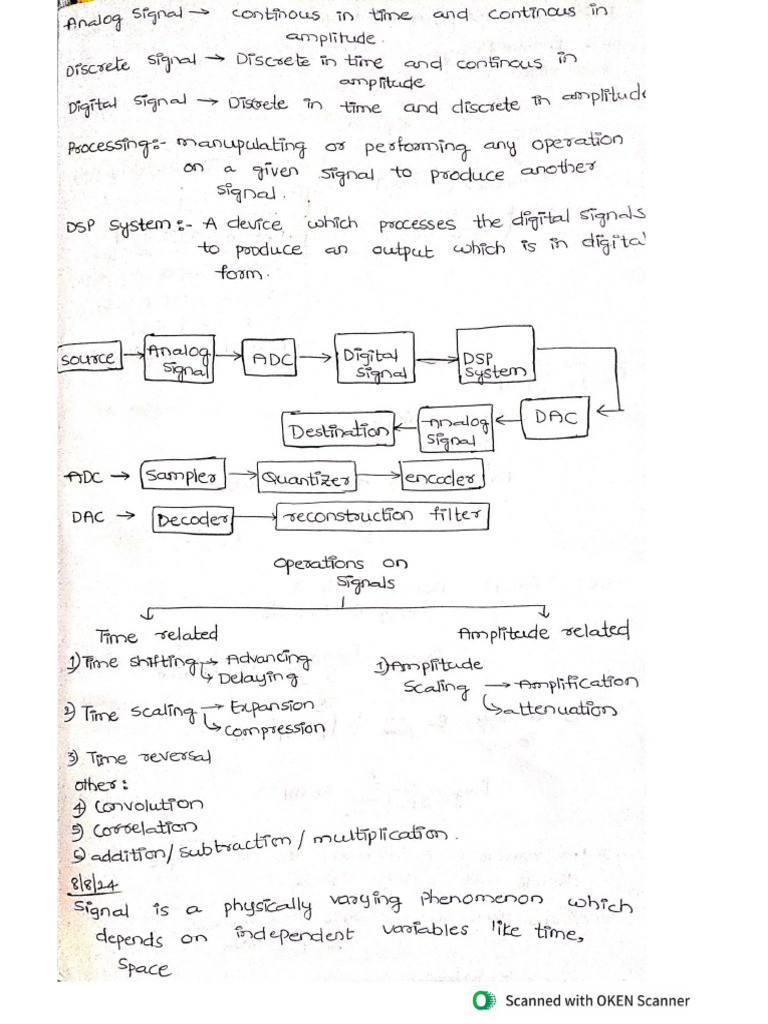 Analog Signal → continous in time and continous in
amplitude.
Discrete Signal → Discrete in time and continous in
amplitude
Digital Signal → Discrete in time and discrete in amplitude
Processing:- manupulating or performing any operation
on a given signal to produce another
signal.
DSP System:- A device, which processes the digital signals
to produce an output which is in digital
form.
Source → Analog Signal → ADC → Digital Signal → DSP System
Destination ← Analog Signal ← DAC ←
ADC → Sampler → Quantizer → encoder
DAC → Decoder → reconstruction filter
Operations on
Signals
Time related Amplitude related
1) Time shifting → Advancing 1) Amplitude
↳ Delaying Scaling → Amplification
2) Time scaling → Expansion ↳ attenuation
↳ compression
3) Time reversal
other:
4) Convolution
5) Correlation
6) addition/subtraction/multiplication.
8/8/24
Signal is a physically varying phenomenon which
depends on independent variables like time,
space
Scanned with OKEN Scanner